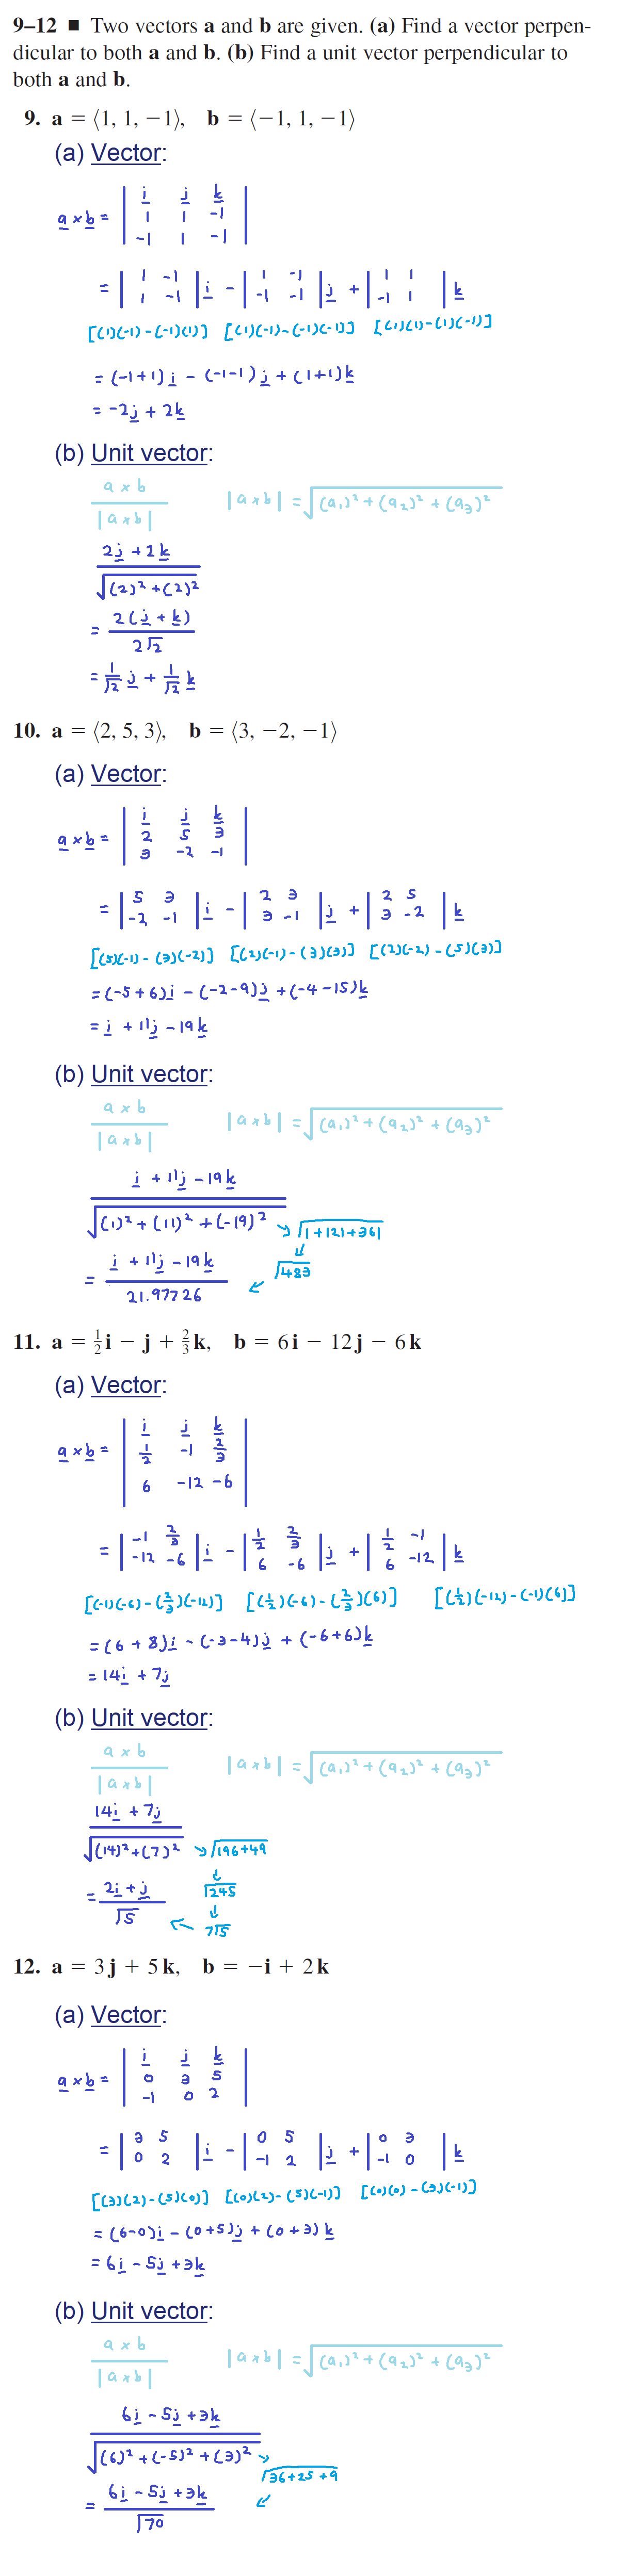 9–12 ■ Two vectors a and b are given. (a) Find a vector perpen-
dicular to both a and b. (b) Find a unit vector perpendicular to
both a and b.
9. a = ⟨1, 1, −1⟩, b = ⟨−1, 1, −1⟩
(a) Vector:
i j k
a × b = 1 1 -1
-1 1 -1
= | 1 -1 | i - | 1 -1 | j + | 1 1 | k
1 -1 -1 -1 -1 1
[(1)(-1) - (-1)(1)] [(1)(-1) - (-1)(-1)] [(1)(1) - (1)(-1)]
= (-1+1) i - (-1-1) j + (1+1) k
= -2j + 2k
(b) Unit vector:
a × b
|a × b| |a × b| = √(a₁)² + (a₂)² + (a₃)²
2j + 2k
√(2)² + (2)²
= 2(j + k)
2√2
= 1/√2 j + 1/√2 k
10. a = ⟨2, 5, 3⟩, b = ⟨3, −2, −1⟩
(a) Vector:
i j k
a × b = 2 5 3
3 -2 -1
= | 5 3 | i - | 2 3 | j + | 2 5 | k
-2 -1 3 -1 3 -2
[(5)(-1) - (3)(-2)] [(2)(-1) - (3)(3)] [(2)(-2) - (5)(3)]
= (-5+6)i - (-2-9)j + (-4-15)k
= i + 11j - 19k
(b) Unit vector:
a × b
|a × b| |a × b| = √(a₁)² + (a₂)² + (a₃)²
i + 11j - 19k
√(1)² + (11)² + (-19)² → √1+121+361
↓
= i + 11j - 19k √483
21.97726 ↙
11. a = ½i − j + ⅔k, b = 6i − 12j − 6k
(a) Vector:
i j k
a × b = ½ -1 ⅔
6 -12 -6
= | -1 ⅔ | i - | ½ ⅔ | j + | ½ -1 | k
-12 -6 6 -6 6 -12
[(-1)(-6) - (⅔)(-12)] [(½)(-6) - (⅔)(6)] [(½)(-12) - (-1)(6)]
= (6 + 8)i - (-3-4)j + (-6+6)k
= 14i + 7j
(b) Unit vector:
a × b
|a × b| |a × b| = √(a₁)² + (a₂)² + (a₃)²
14i + 7j
√(14)² + (7)² → √196+49
↓
= 2i + j √245
√5 ↓
← 7√5
12. a = 3j + 5k, b = −i + 2k
(a) Vector:
i j k
a × b = 0 3 5
-1 0 2
= | 3 5 | i - | 0 5 | j + | 0 3 | k
0 2 -1 2 -1 0
[(3)(2) - (5)(0)] [(0)(2) - (5)(-1)] [(0)(0) - (3)(-1)]
= (6-0)i - (0+5)j + (0+3)k
= 6i - 5j + 3k
(b) Unit vector:
a × b
|a × b| |a × b| = √(a₁)² + (a₂)² + (a₃)²
6i - 5j + 3k
√(6)² + (-5)² + (3)² → √36+25+9
= 6i - 5j + 3k ↙
√70